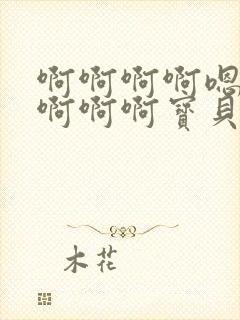 啊啊啊啊嗯
啊啊啊寶貝
木花